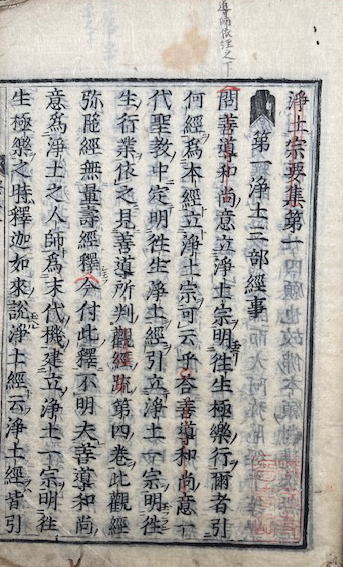 導師依經之下
淨土宗要集第一
第一淨土三部經事
問善導和尚意立淨土宗明徃生極樂行爾者引
何經爲本經立淨土宗可云乎荅善導和尚意一
代聖教中定明徃生淨土經引立淨土一宗明徃
生行業依之見善導所判觀經疏第四卷此觀經
弥陀經無量壽經釋今付此釋不明夫善導和尚
意爲淨土之人師爲末代機建立淨土一宗明徃
生極樂之時釋迦如來說淨土經云淨土經皆引